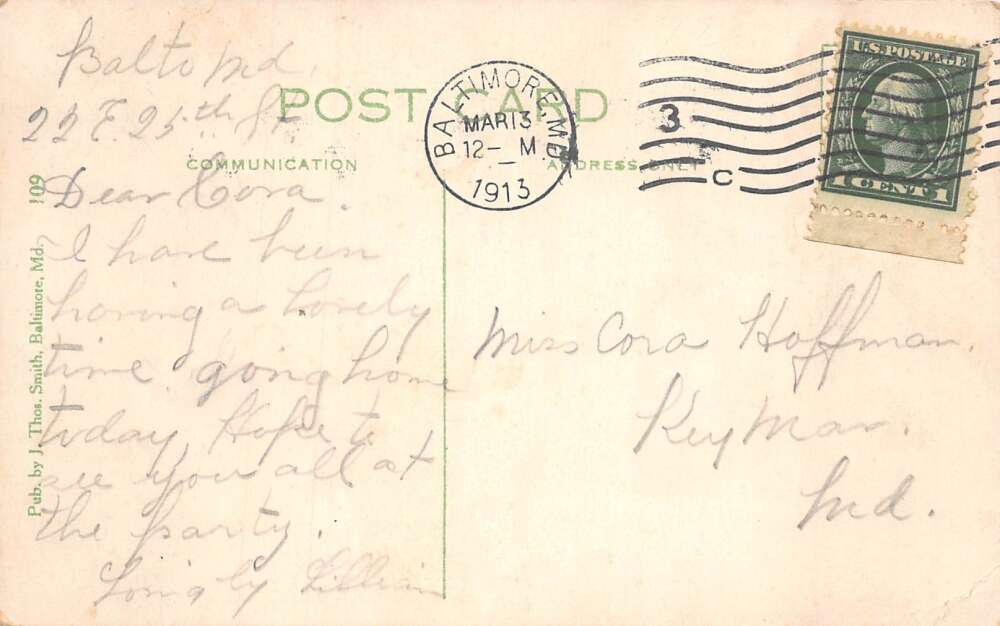 Balto Md.
22 E 25th St
POST CARD
COMMUNICATION
ADDRESS ONLY
BALTIMORE, MD.
MAR 13
12- M
1913
3
C
U.S. POSTAGE
1 CENT 1
Dear Cora.
I have been
having a lovely
time going home
today, Hope to
see you all at
the party.
Lovingly Lillian
Miss Cora Hoffman.
Keymar.
Md.
Pub. by J. Thos. Smith, Baltimore, Md. 109